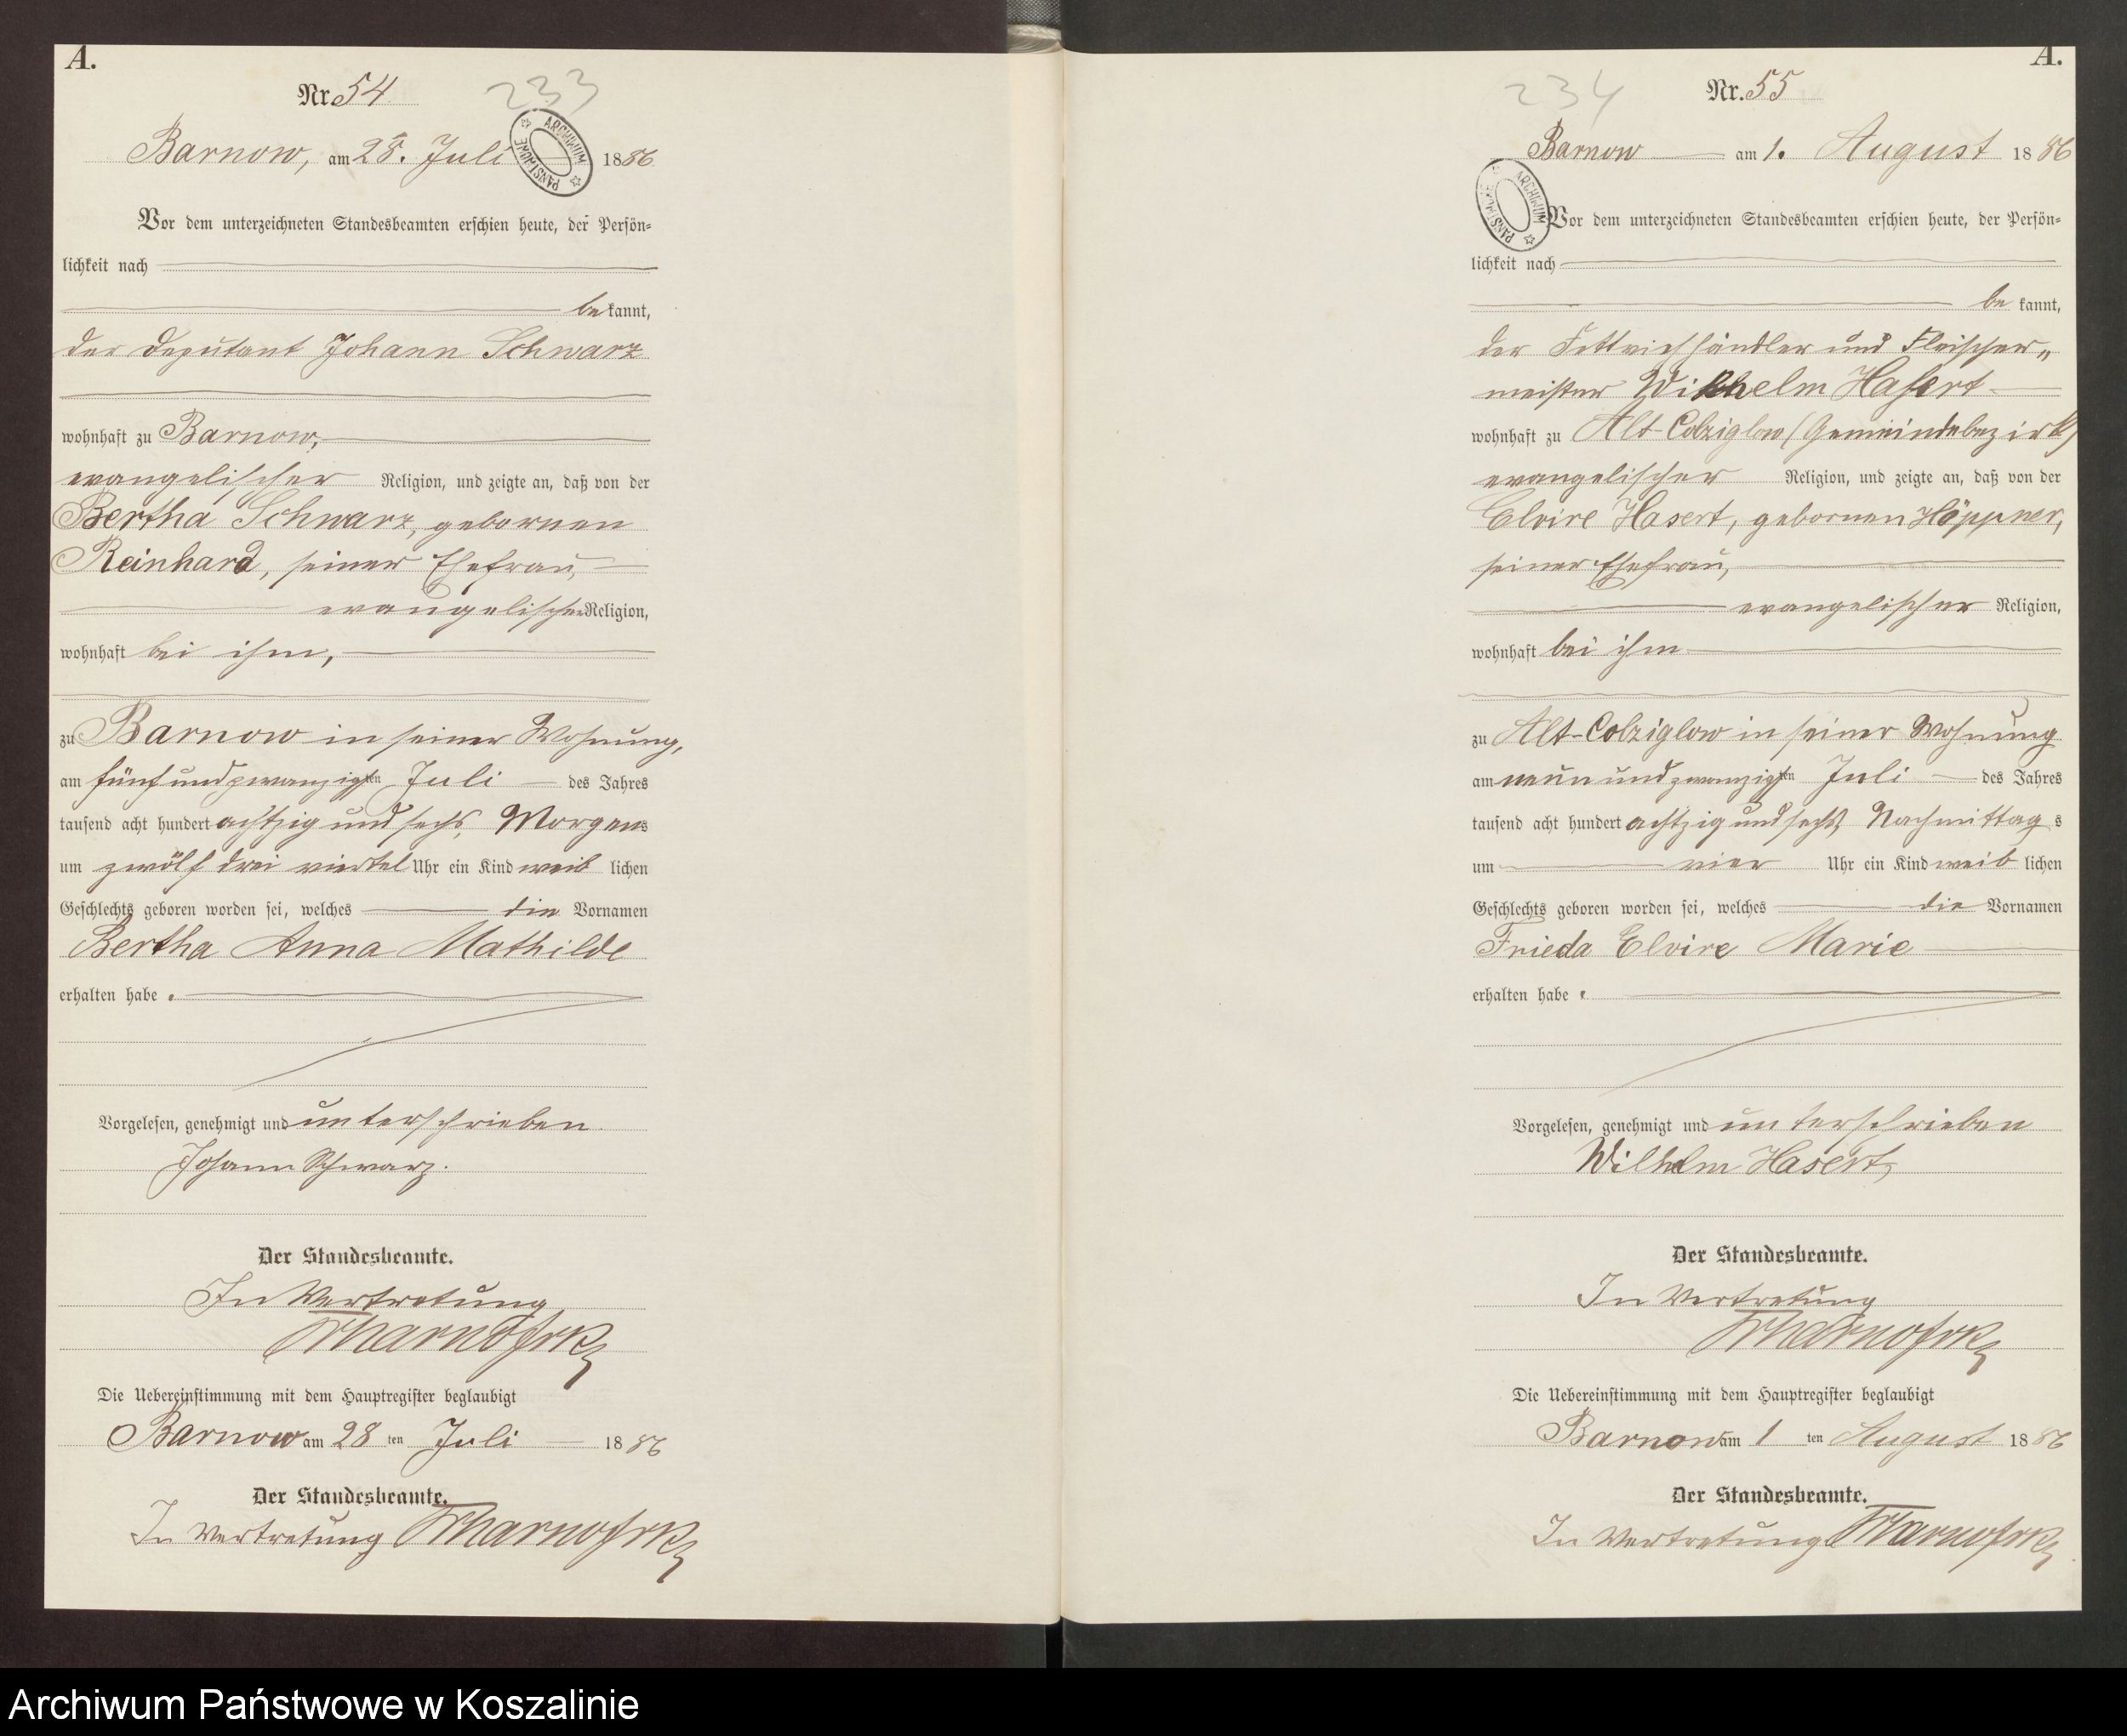 A.
Nr. 54
233
ARCHIWUM PAŃSTWOWE
Barnow, am 28. Juli 1886
Vor dem unterzeichneten Standesbeamten erschien heute, der Persön=
lichkeit nach
be kannt,
der Deputant Johann Schwarz
wohnhaft zu Barnow,
evangelischer Religion, und zeigte an, daß von der
Bertha Schwarz, gebornen
Reinhard, seiner Ehefrau,
evangelischer Religion,
wohnhaft bei ihm,
zu Barnow in seiner Wohnung,
am fünfundzwanzigsten Juli des Jahres
tausend acht hundert achtzig und sechs, Morgens
um zwölf drei viertel Uhr ein Kind weib lichen
Geschlechts geboren worden sei, welches die Vornamen
Bertha Anna Mathilde
erhalten habe.
Vorgelesen, genehmigt und unterschrieben.
Johann Schwarz.
Der Standesbeamte.
In Vertretung
Die Uebereinstimmung mit dem Hauptregister beglaubigt
Barnow am 28 ten Juli 1886
Der Standesbeamte.
In Vertretung
A.
Nr. 55
234
ARCHIWUM PAŃSTWOWE
Barnow am 1. August 1886
Vor dem unterzeichneten Standesbeamten erschien heute, der Persön=
lichkeit nach
be kannt,
der Fettviehhändler und Fleischer„
meister Wilhelm Hasert
wohnhaft zu Alt-Colziglow (Gemeindebezirk)
evangelischer Religion, und zeigte an, daß von der
Elvire Hasert, gebornen Höppner,
seiner Ehefrau,
evangelischer Religion,
wohnhaft bei ihm
zu Alt-Colziglow in seiner Wohnung
am neunundzwanzigsten Juli des Jahres
tausend acht hundert achtzig und sechs, Nachmittag s
um vier Uhr ein Kind weib lichen
Geschlechts geboren worden sei, welches die Vornamen
Frieda Elvire Marie
erhalten habe.
Vorgelesen, genehmigt und unterschrieben
Wilhelm Hasert,
Der Standesbeamte.
In Vertretung
Die Uebereinstimmung mit dem Hauptregister beglaubigt
Barnow am 1 ten August 1886
Der Standesbeamte.
In Vertretung
Archiwum Państwowe w Koszalinie